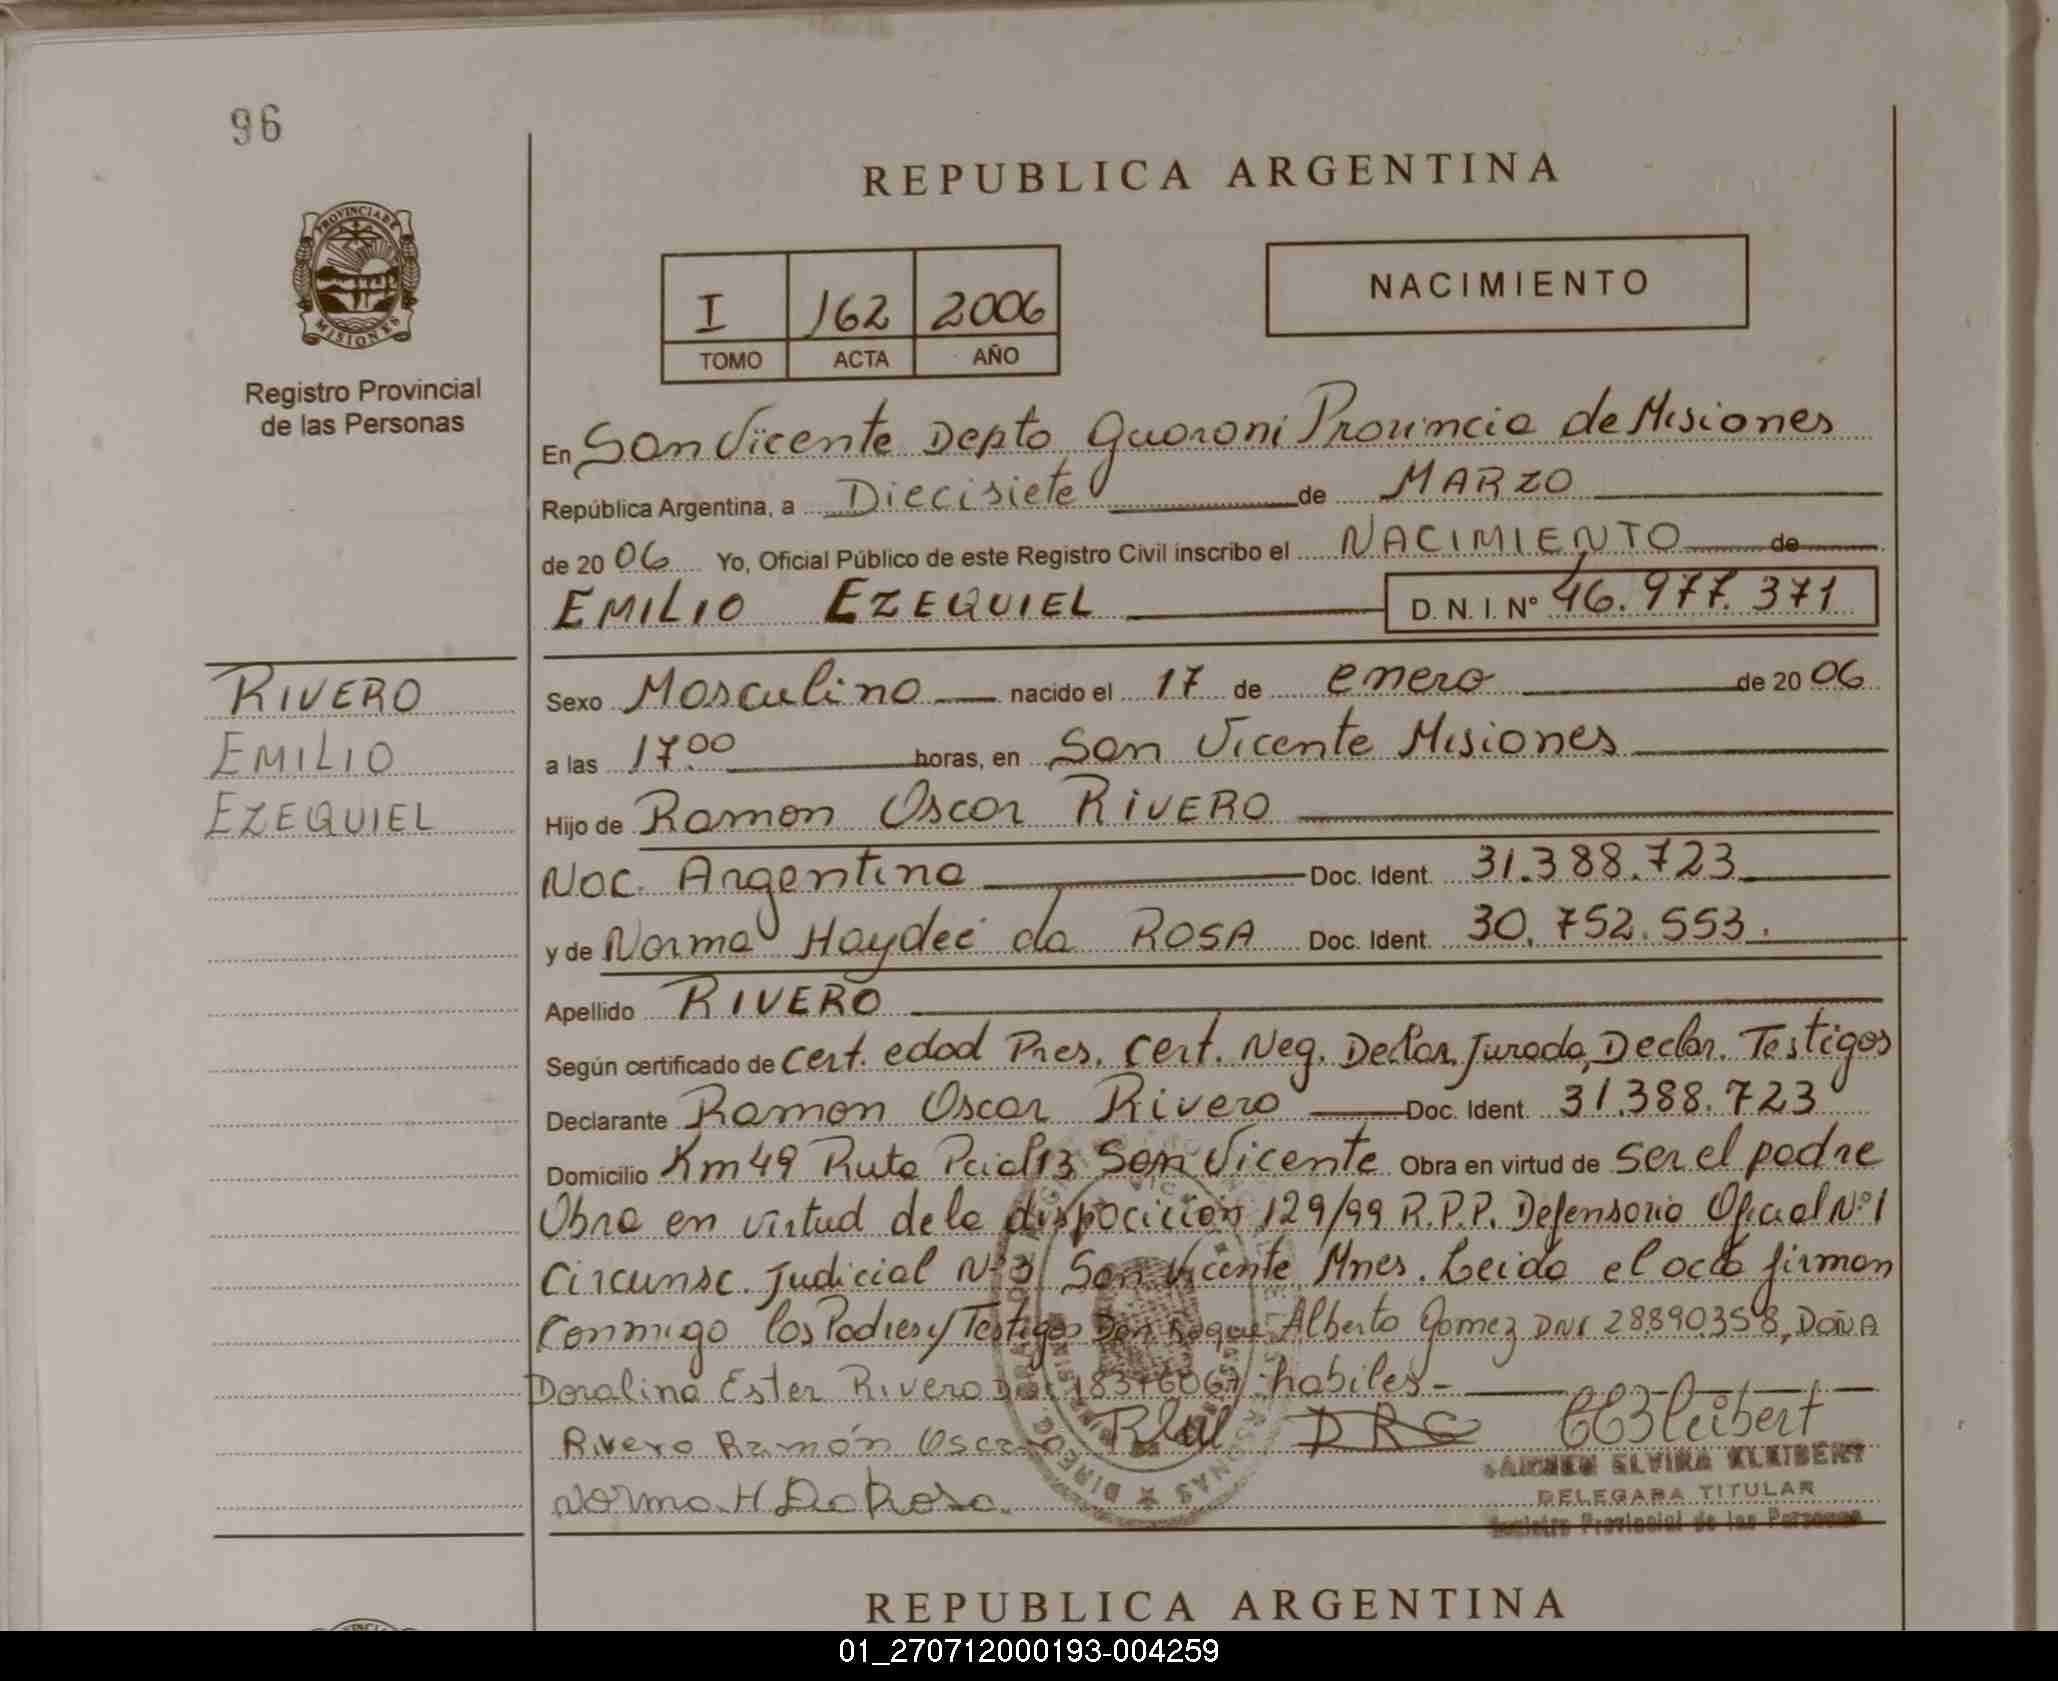 96
REPUBLICA ARGENTINA
PROVINCIA DE
MISIONES
Registro Provincial
de las Personas
I 162 2006
TOMO ACTA AÑO
NACIMIENTO
En San Vicente Depto Guarani Provincia de Misiones
República Argentina, a Diecisiete de MARZO
de 2006 Yo, Oficial Público de este Registro Civil inscribo el NACIMIENTO de
EMILIO EZEQUIEL D. N. I. Nº 46.977.371
RIVERO
EMILIO
EZEQUIEL
Sexo Masculino nacido el 17 de enero de 2006
a las 17.00 horas, en San Vicente Misiones
Hijo de Ramon Oscar RIVERO
Nac. Argentina Doc. Ident. 31.388.723
y de Norma Haydeé da ROSA Doc. Ident. 30.752.553.
Apellido RIVERO
Según certificado de Cert. edad Pres. Cert. Neg. Declar. Jurada, Declar. Testigos
Declarante Ramon Oscar Rivero Doc. Ident. 31.388.723
Domicilio Km 49 Ruta Pcial 13 San Vicente Obra en virtud de ser el padre
Obra en virtud de la disposición 129/99 R.P.P. Defensoria Oficial Nº 1
Circunsc. Judicial Nº 3 San Vicente Mnes. Leida el acta firman
Conmigo los Padres y Testigos Don Roque Alberto Gomez DNI 28890358, DOÑA
Doralina Ester Rivero habiles-
Rivero Ramón Oscar DRG CEKleibert
CARMEN ELVIRA KLEIBERT
Norma H Da Rosa
DELEGADA TITULAR
Registro Provincial de las Personas
REPUBLICA ARGENTINA
01_270712000193-004259